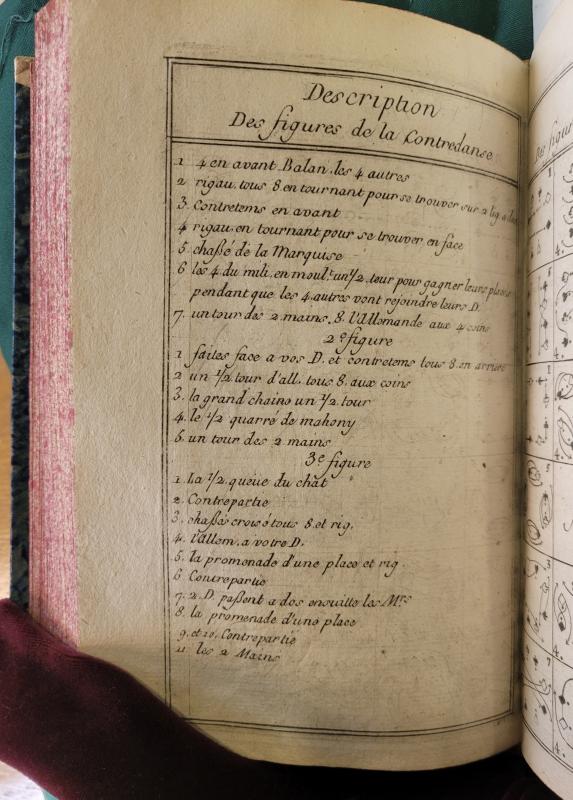 Description
Des figures de la Contredanse
1 4 en avant Balan. les 4 autres
2 rigau. tous 8. en tournant pour se trouver sur 2 lig.
3. Contretems en avant
4 rigau. en tournant pour se trouver en face
5 chaßé de la Marquise
6 les 4 du mili. en moul.t un 1/2 tour pour gagner leurs places
pendant que les 4. autres vont rejoindre leurs D.
7. un tour des 2 mains. 8. l'Allemande aux 4 coins
2e figure
1 faites face a vos D. et contretems tous 8. en arriere
2 un 1/2 tour d'all. tous 8. aux coins
3. la grand chaine un 1/2 tour
4. le 1/2 quarré de mahony
5. un tour des 2 mains
3e figure
1. La 1/2 queüe du chat
2. Contrepartie
3. chaßés croisé tous 8. et rig.
4. l'allem. a votre D.
5. la promenade d'une place et rig.
6 Contrepartie
7. 2. D. paßent a dos ensuitte les Mrs
8. la promenade d'une place
9. et 10. Contrepartie
11 les 2 Mains
Des figur